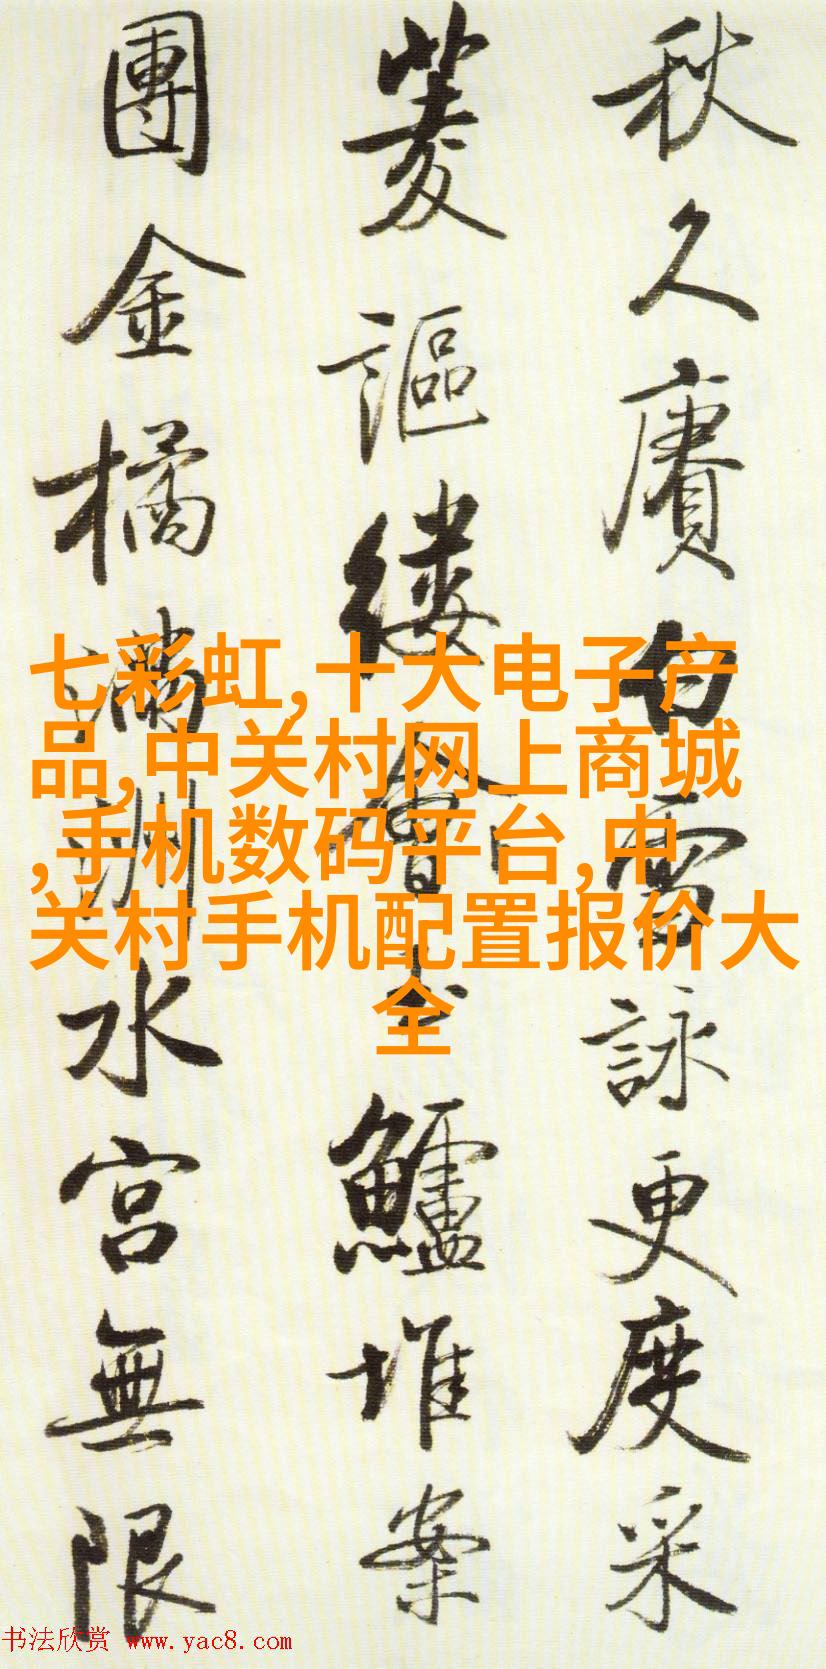 秋久賡白雪詠更度采
菱謳縷會鱸堆案
團金橘滿洲水宮無限
七彩虹,十大电子产
品,中关村网上商城
,手机数码平台,中
关村手机配置报价大
全
书法欣赏 www.yac8.com